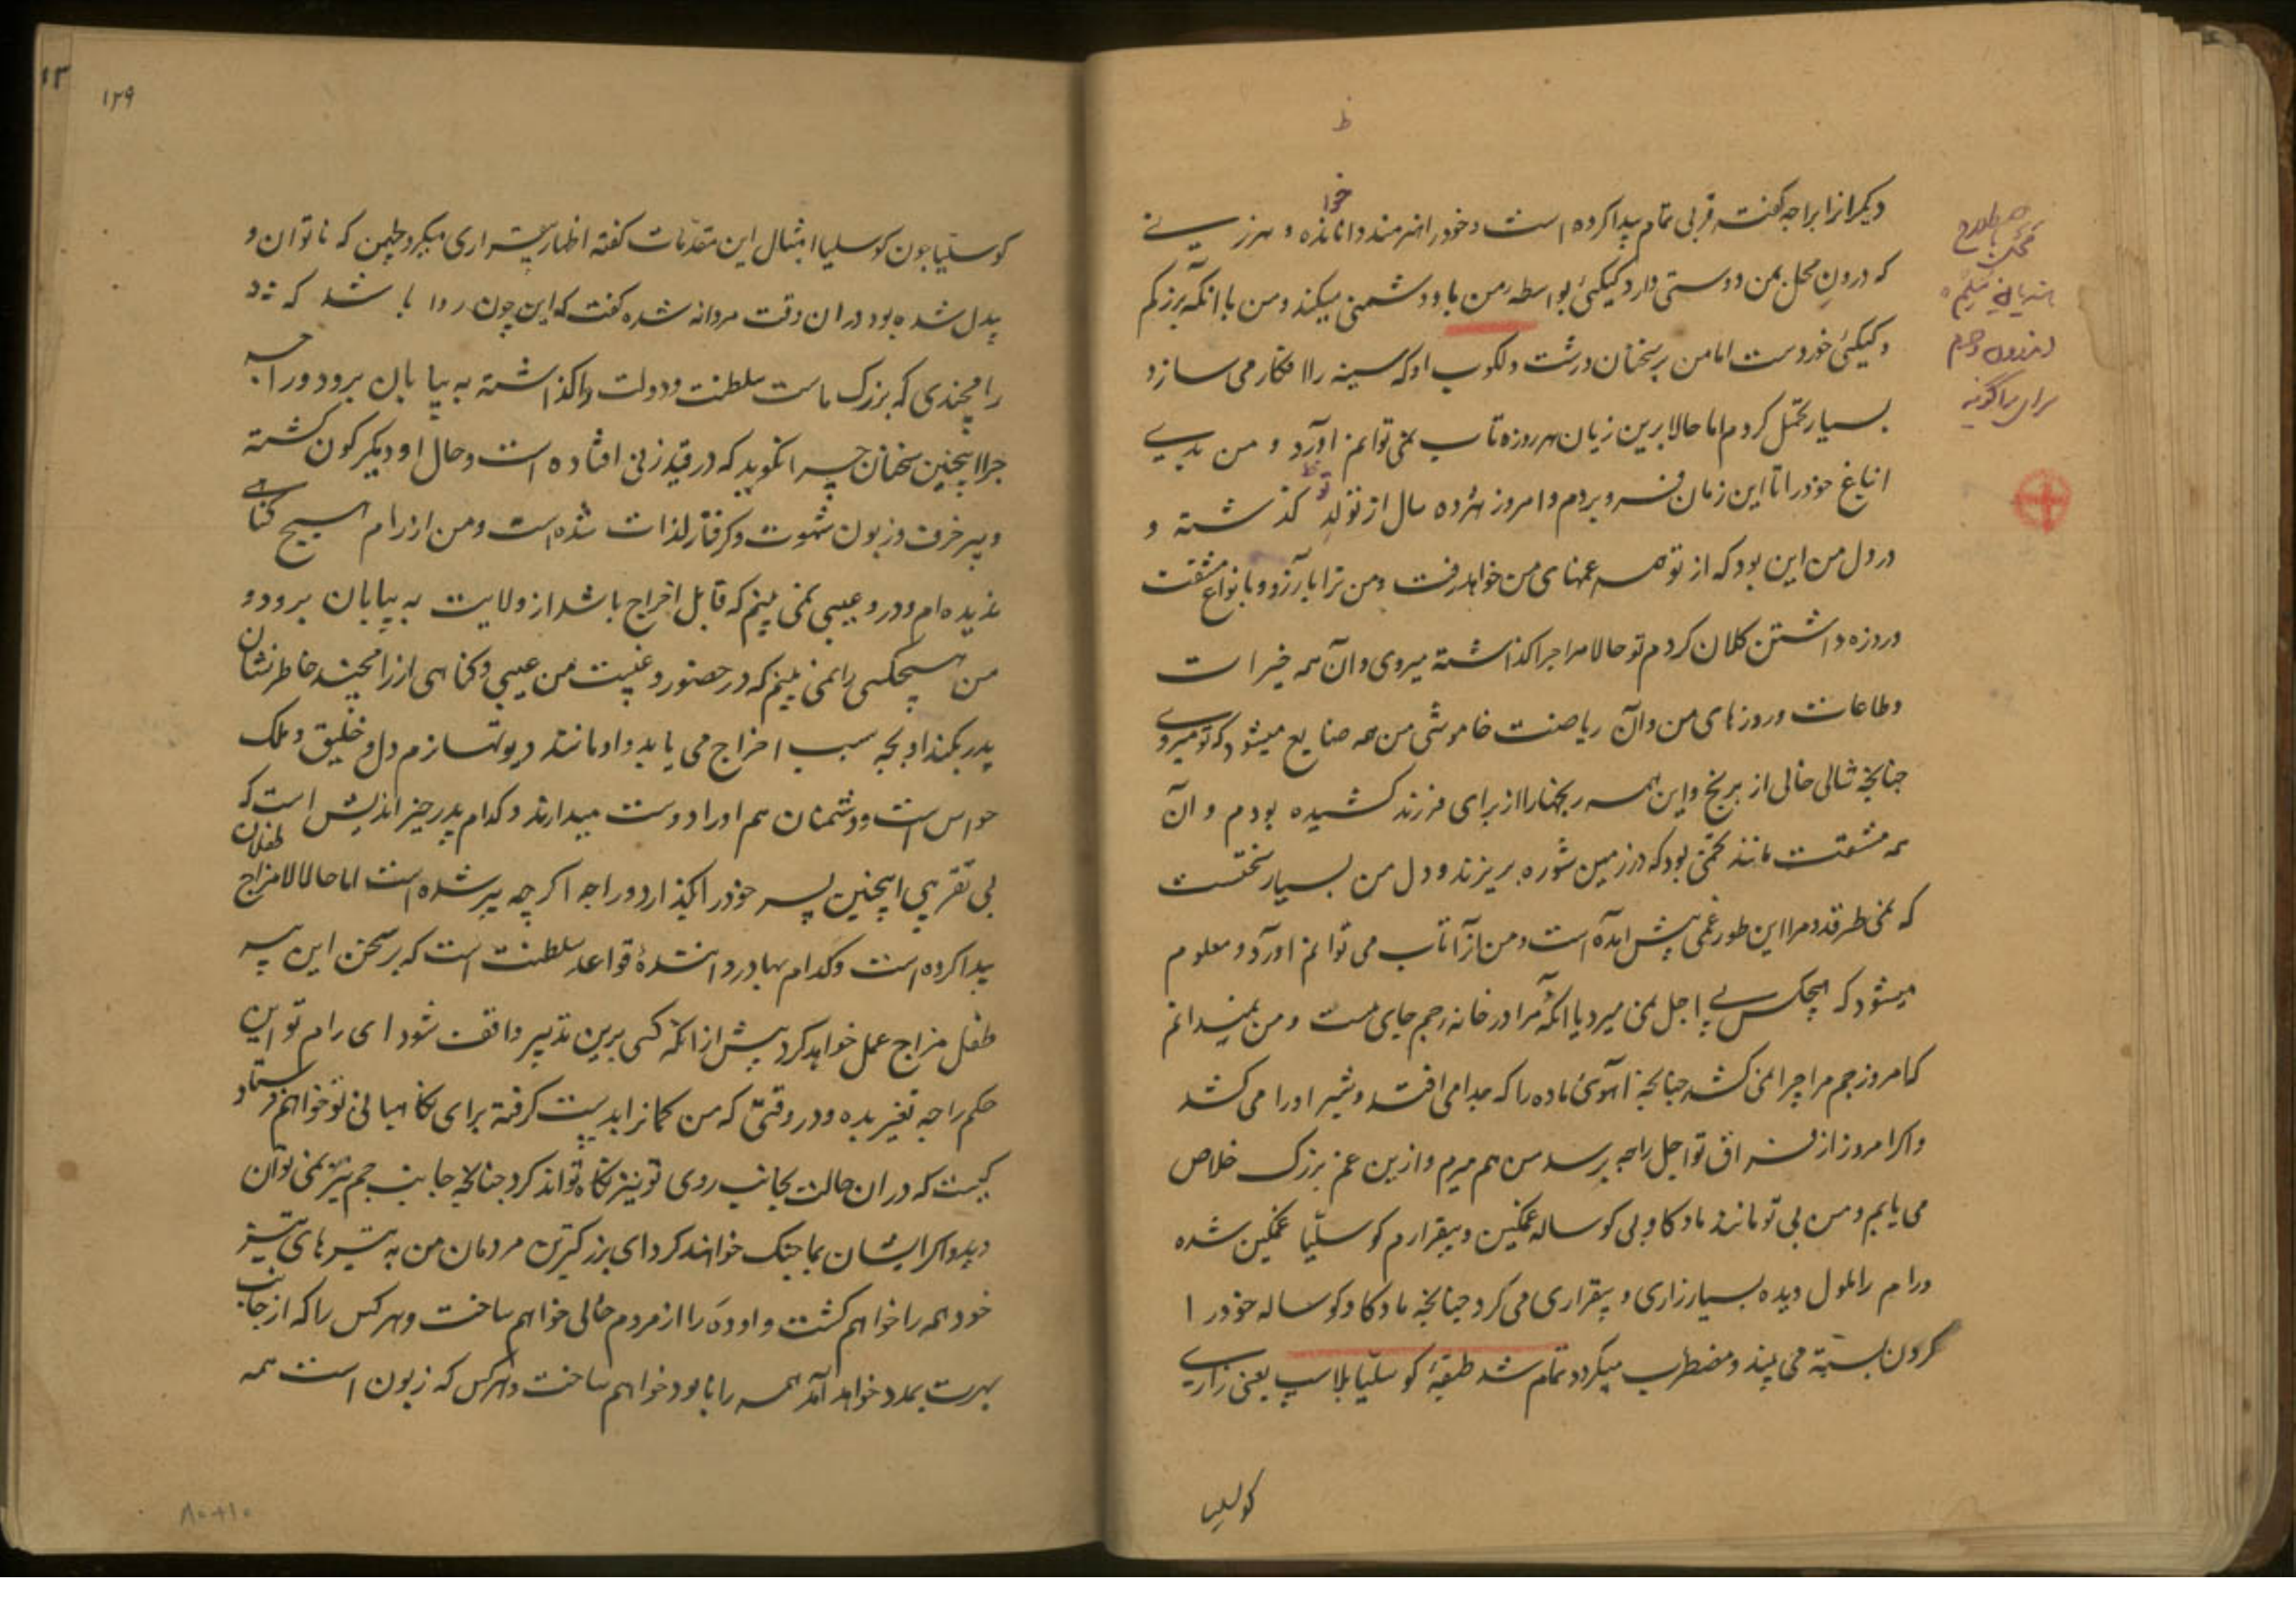 دیکر از ابراجه کفت قربی تمام پیدا کرده است و خود را هنرمند و دانا نده و هر زینے
خوا
که درون محل بمن دوستی دارد کیکئی بواسطه من باو دشمنی میکند و من با آنکه بزرکم
و کیکئی خورد ست اما من بر سخنان درشت دلکوب او که سینه را افکار می سازد
بسیار تحمل کردم اما حالا برین زیان هر روزه تاب نمی توانم آورد و من بدیے
انباغ خود را تا این زمان فرو بردم و امروز هژده سال از تولد تو کذشته و
در دل من این بود که از تو همه غمهای من خواهد رفت و من ترا بآرزو و بانواع مشقت
و روزه داشتن کلان کردم تو حالا مرا چرا کذاشته میروی و آن همه خیرات
و طاعات و روزهای من و آن ریاضت خاموشی من همه ضایع میشود که تو میروے
چنانچه شالی خالی از برنج و این همه رنجها را از برای فرزند کشیده بودم و آن
همه مشقت مانند تخمی بود که در زمین شوره بریزند و دل من بسیار سختست
که نمی طرقد و مرا این طور غمی پیش آمده است و من آنرا تاب می توانم آورد و معلوم
میشود که هیچکس بے اجل نمی میرد یا آنکه مرا در خانه جم جای نیست و من نمیدانم
که امروز جم مرا چرا نمی کشد چنانچه آهوی ماده را که جدا می افتد و شیر او را می کشد
و اکر امروز از فراق تو اجل راجه برسد من هم میرم و ازین غم بزرک خلاص
می یابم و من بی تو مانند ماد کاو بی کوساله غمکین و بیقرارم کوسلیا غمکین شده
و رام را ملول دیده بسیار زاری و بیقراری می کرد چنانچه ماد کاو کوساله خود را
کردن بسته می بیند و مضطرب میکردد تمام شد طبقهٔ کوسلیا بلاپ یعنی زاریے
کوسلیا
۱۲۹
کوسلیا چون کوسلیا امثال این مقدمات کفته اظهار بیقراری میکرد لچمن که ناتوان و
بیدل شده بود در ان وقت مردانه شده کفت که این چون روا باشد که
رامچندی که بزرک ماست سلطنت و دولت واکذاشته به بیابان برود و راجه
چرا اینچنین سخنان چرا نکوید که در قید زنی افتاده است و حال او دیکرکون کشته
و پیر خرف و زبون شهوت و کرفتار لذات شده است و من از رام هیچ کناهے
ندیده ام و در و عیبی نمی بینم که قابل اخراج باشد از ولایت به بیابان برود و
من هیچکسی را نمی بینم که در حضور و غیبت من عیبی و کناهی از رامچند خاطر نشان
پدر بکند او بچه سبب اخراج می یابد و او مانند دیوتها نرم دل و خلیق و ملک
حواس است و دشمنان هم او را دوست میدارند و کدام پدر خیر اندیش است که
بی تقریبی اینچنین پسر خود را بکذارد و راجه اکر چه پیر شده است اما حالا مزاج طفلان
پیدا کرده است و کدام بهادر دانندهٔ قواعد سلطنت است که بر سخن این پیر
طفل مزاج عمل خواهد کرد پیش از آنکه کسی برین تدبیر واقف شود ای رام تو این
حکم راجه تغیر بده و در وقتی که من کمانرا بدست کرفته برای نکاهبانی تو خواهم ستاد
کیست که در ان حالت بجانب روی تو نیز نکاه تواند کرد چنانچه جانب جم نیز نمی توان
دید و اکر ایشان بما جنک خواهند کرد ای بزرکترین مردمان من به تیرهای تیز
خود همه را خواهم کشت و اوده را از مردم خالی خواهم ساخت و هر کس را که از جانب
بهرت بمدد خواهد آمد همه را نابود خواهم ساخت و هر کس که زبون است همه